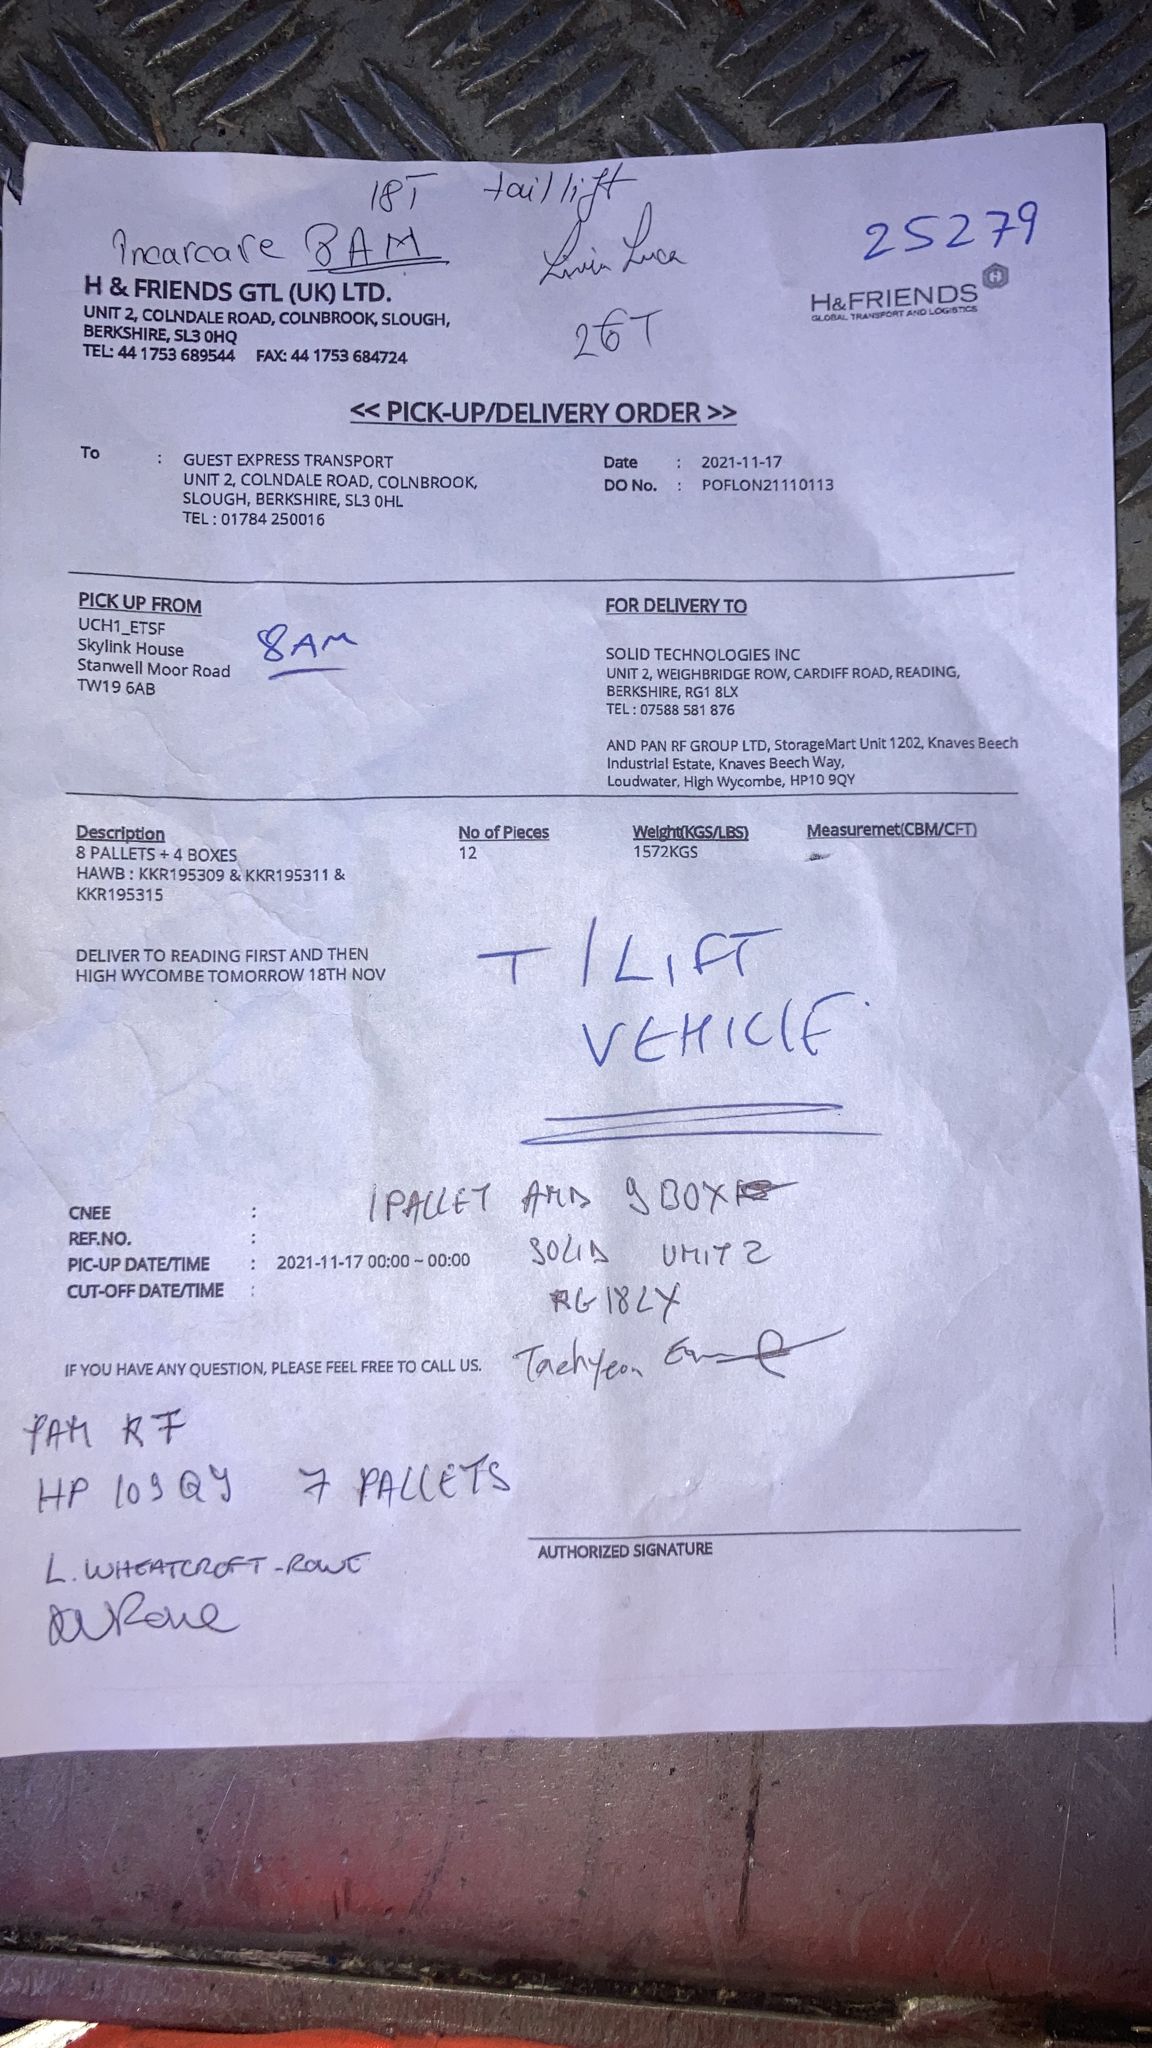 18T tail lift
Incarcare 8AM
Livia Luca
25279
H & FRIENDS GTL (UK) LTD.
UNIT 2, COLNDALE ROAD, COLNBROOK, SLOUGH,
BERKSHIRE, SL3 0HQ
TEL: 44 1753 689544 FAX: 44 1753 684724
26T
H&FRIENDS
GLOBAL TRANSPORT AND LOGISTICS
<< PICK-UP/DELIVERY ORDER >>
To : GUEST EXPRESS TRANSPORT
UNIT 2, COLNDALE ROAD, COLNBROOK,
SLOUGH, BERKSHIRE, SL3 0HL
TEL : 01784 250016
Date : 2021-11-17
DO No. : POFLON21110113
PICK UP FROM
UCH1_ETSF
Skylink House
Stanwell Moor Road
TW19 6AB
8AM
FOR DELIVERY TO
SOLID TECHNOLOGIES INC
UNIT 2, WEIGHBRIDGE ROW, CARDIFF ROAD, READING,
BERKSHIRE, RG1 8LX
TEL : 07588 581 876
AND PAN RF GROUP LTD, StorageMart Unit 1202, Knaves Beech
Industrial Estate, Knaves Beech Way,
Loudwater, High Wycombe, HP10 9QY
Description No of Pieces Weight(KGS/LBS) Measuremet(CBM/CFT)
8 PALLETS + 4 BOXES 12 1572KGS
HAWB : KKR195309 & KKR195311 &
KKR195315
DELIVER TO READING FIRST AND THEN
HIGH WYCOMBE TOMORROW 18TH NOV
T/LIFT
VEHICLE
1 PALLET AND 9 BOX
SOLID UNIT 2
RG18LX
Taehyeon
CNEE :
REF.NO. :
PIC-UP DATE/TIME : 2021-11-17 00:00 ~ 00:00
CUT-OFF DATE/TIME :
IF YOU HAVE ANY QUESTION, PLEASE FEEL FREE TO CALL US.
PAN RF
HP 109QY 7 PALLETS
L. WHEATCROFT-ROWE
AUTHORIZED SIGNATURE